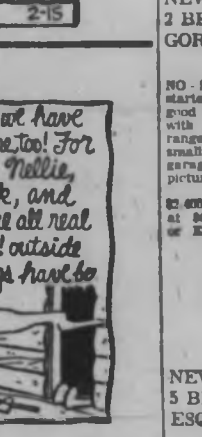 2-15
we have
me, too! For
Nellie,
k, and
e all real
! outside
gs have be
NEW
2 BE
GOR
NO -
starte
good
with
range
small
garag
pictur
at
NEV
5 B
ESQ